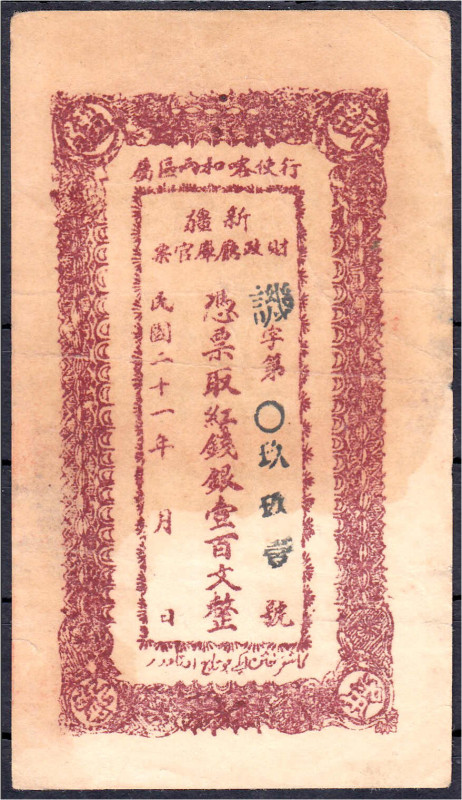 行使喀和两區屬
新疆
財政廳庫官票
譏字第〇玖玖壹號
憑票取紅錢銀壹百文整
民國二十一年 月 日